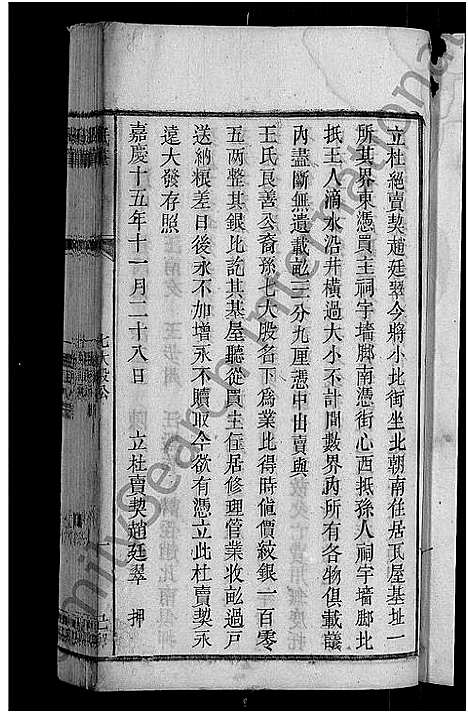 立杜絕賣契趙廷翠今將小北街坐北朝南住居瓦屋基址一
所其界東憑買主祠宇墻脚南憑街心西抵孫人祠宇墻脚北
抵王人滴水沿井橫過大小不計間數界內所有各物俱載議
內盡斷無遺載畝三分九厘憑中出賣與
王氏良善公裔孫七大股名下為業比得時値價紋銀一百零
五兩整其銀比訖其基屋聽從買主住居修理管業收畝過戶
送納粮差日後永不加增永不贖取今欲有憑立此杜賣契永
遠大發存照
嘉慶十五年十一月二十八日 立杜賣契趙廷翠 押
七大股公